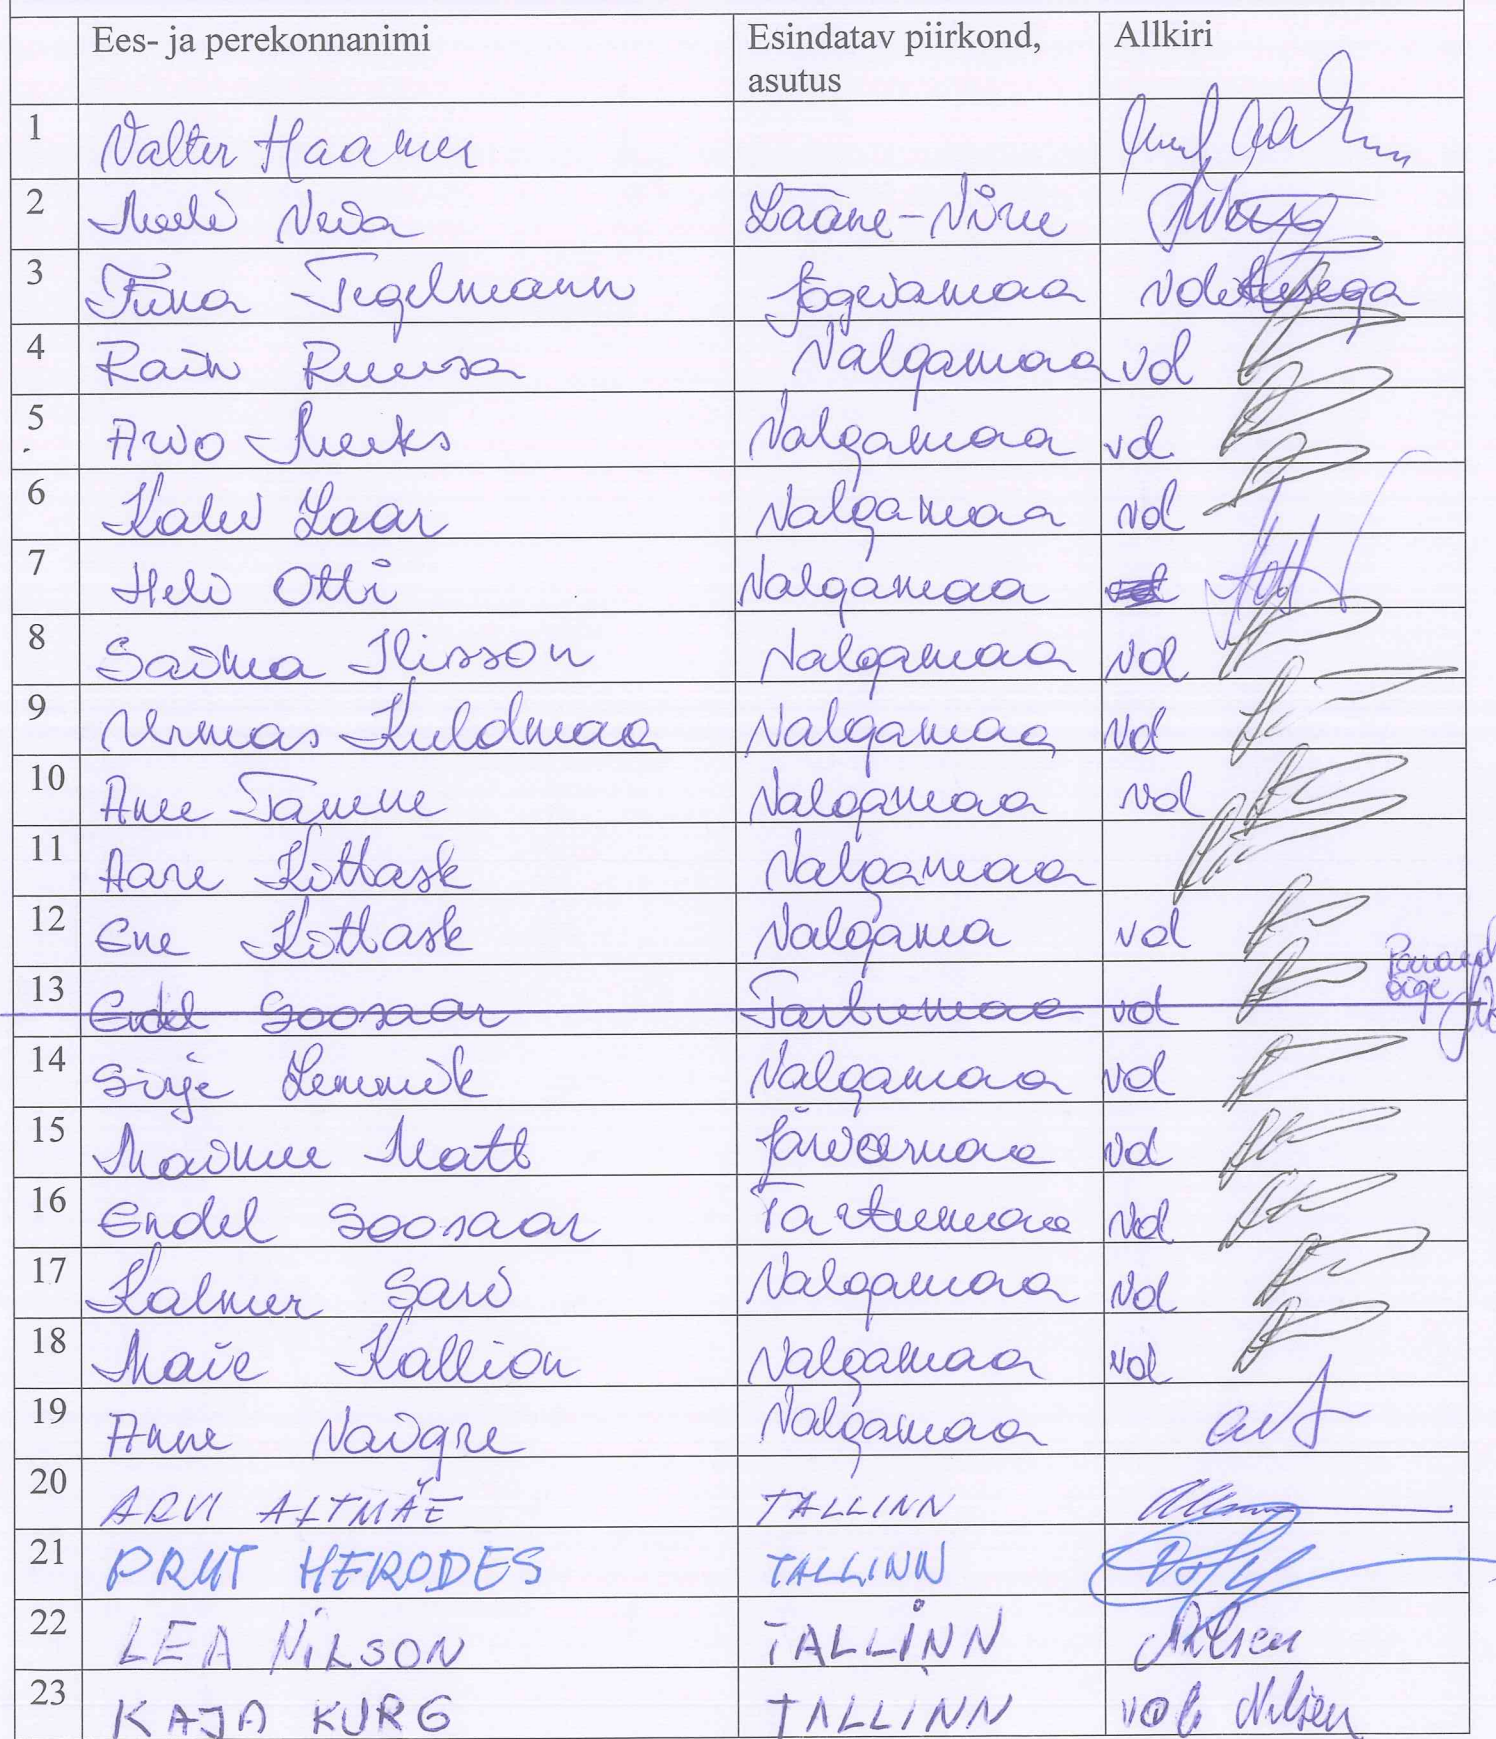 Ees- ja perekonnanimi Esindatav piirkond, asutus Allkiri
1 Valter Haamer
2 Meeli Veia Lääne-Viru
3 Tiina Tegelmann Jõgevamaa volitusega
4 Rain Ruusa Valgamaa vol
5 Arvo Meeks Valgamaa vol
6 Kalev Laar Valgamaa vol
7 Heli Otti Valgamaa
8 Saima Ilisson Valgamaa vol
9 Urmas Kuldmaa Valgamaa vol
10 Anne Tamme Valgamaa vol
11 Aare Kottask Valgamaa
12 Ene Kottask Valgama vol
13 Endel Soosaar Tartumaa vol
14 Sirje Lemmik Valgamaa vol
15 Maimu Matt Järvamaa vol
16 Endel Soosaar Tartumaa vol
17 Kalmer Sarv Valgamaa vol
18 Maie Kallion Valgamaa vol
19 Anne Vaigre Valgamaa
20 ARVI ALTMÄE TALLINN
21 PRIIT HERODES TALLINN
22 LEA NILSON TALLINN Nilson
23 KAJA KURG TALLINN vol. Nilson